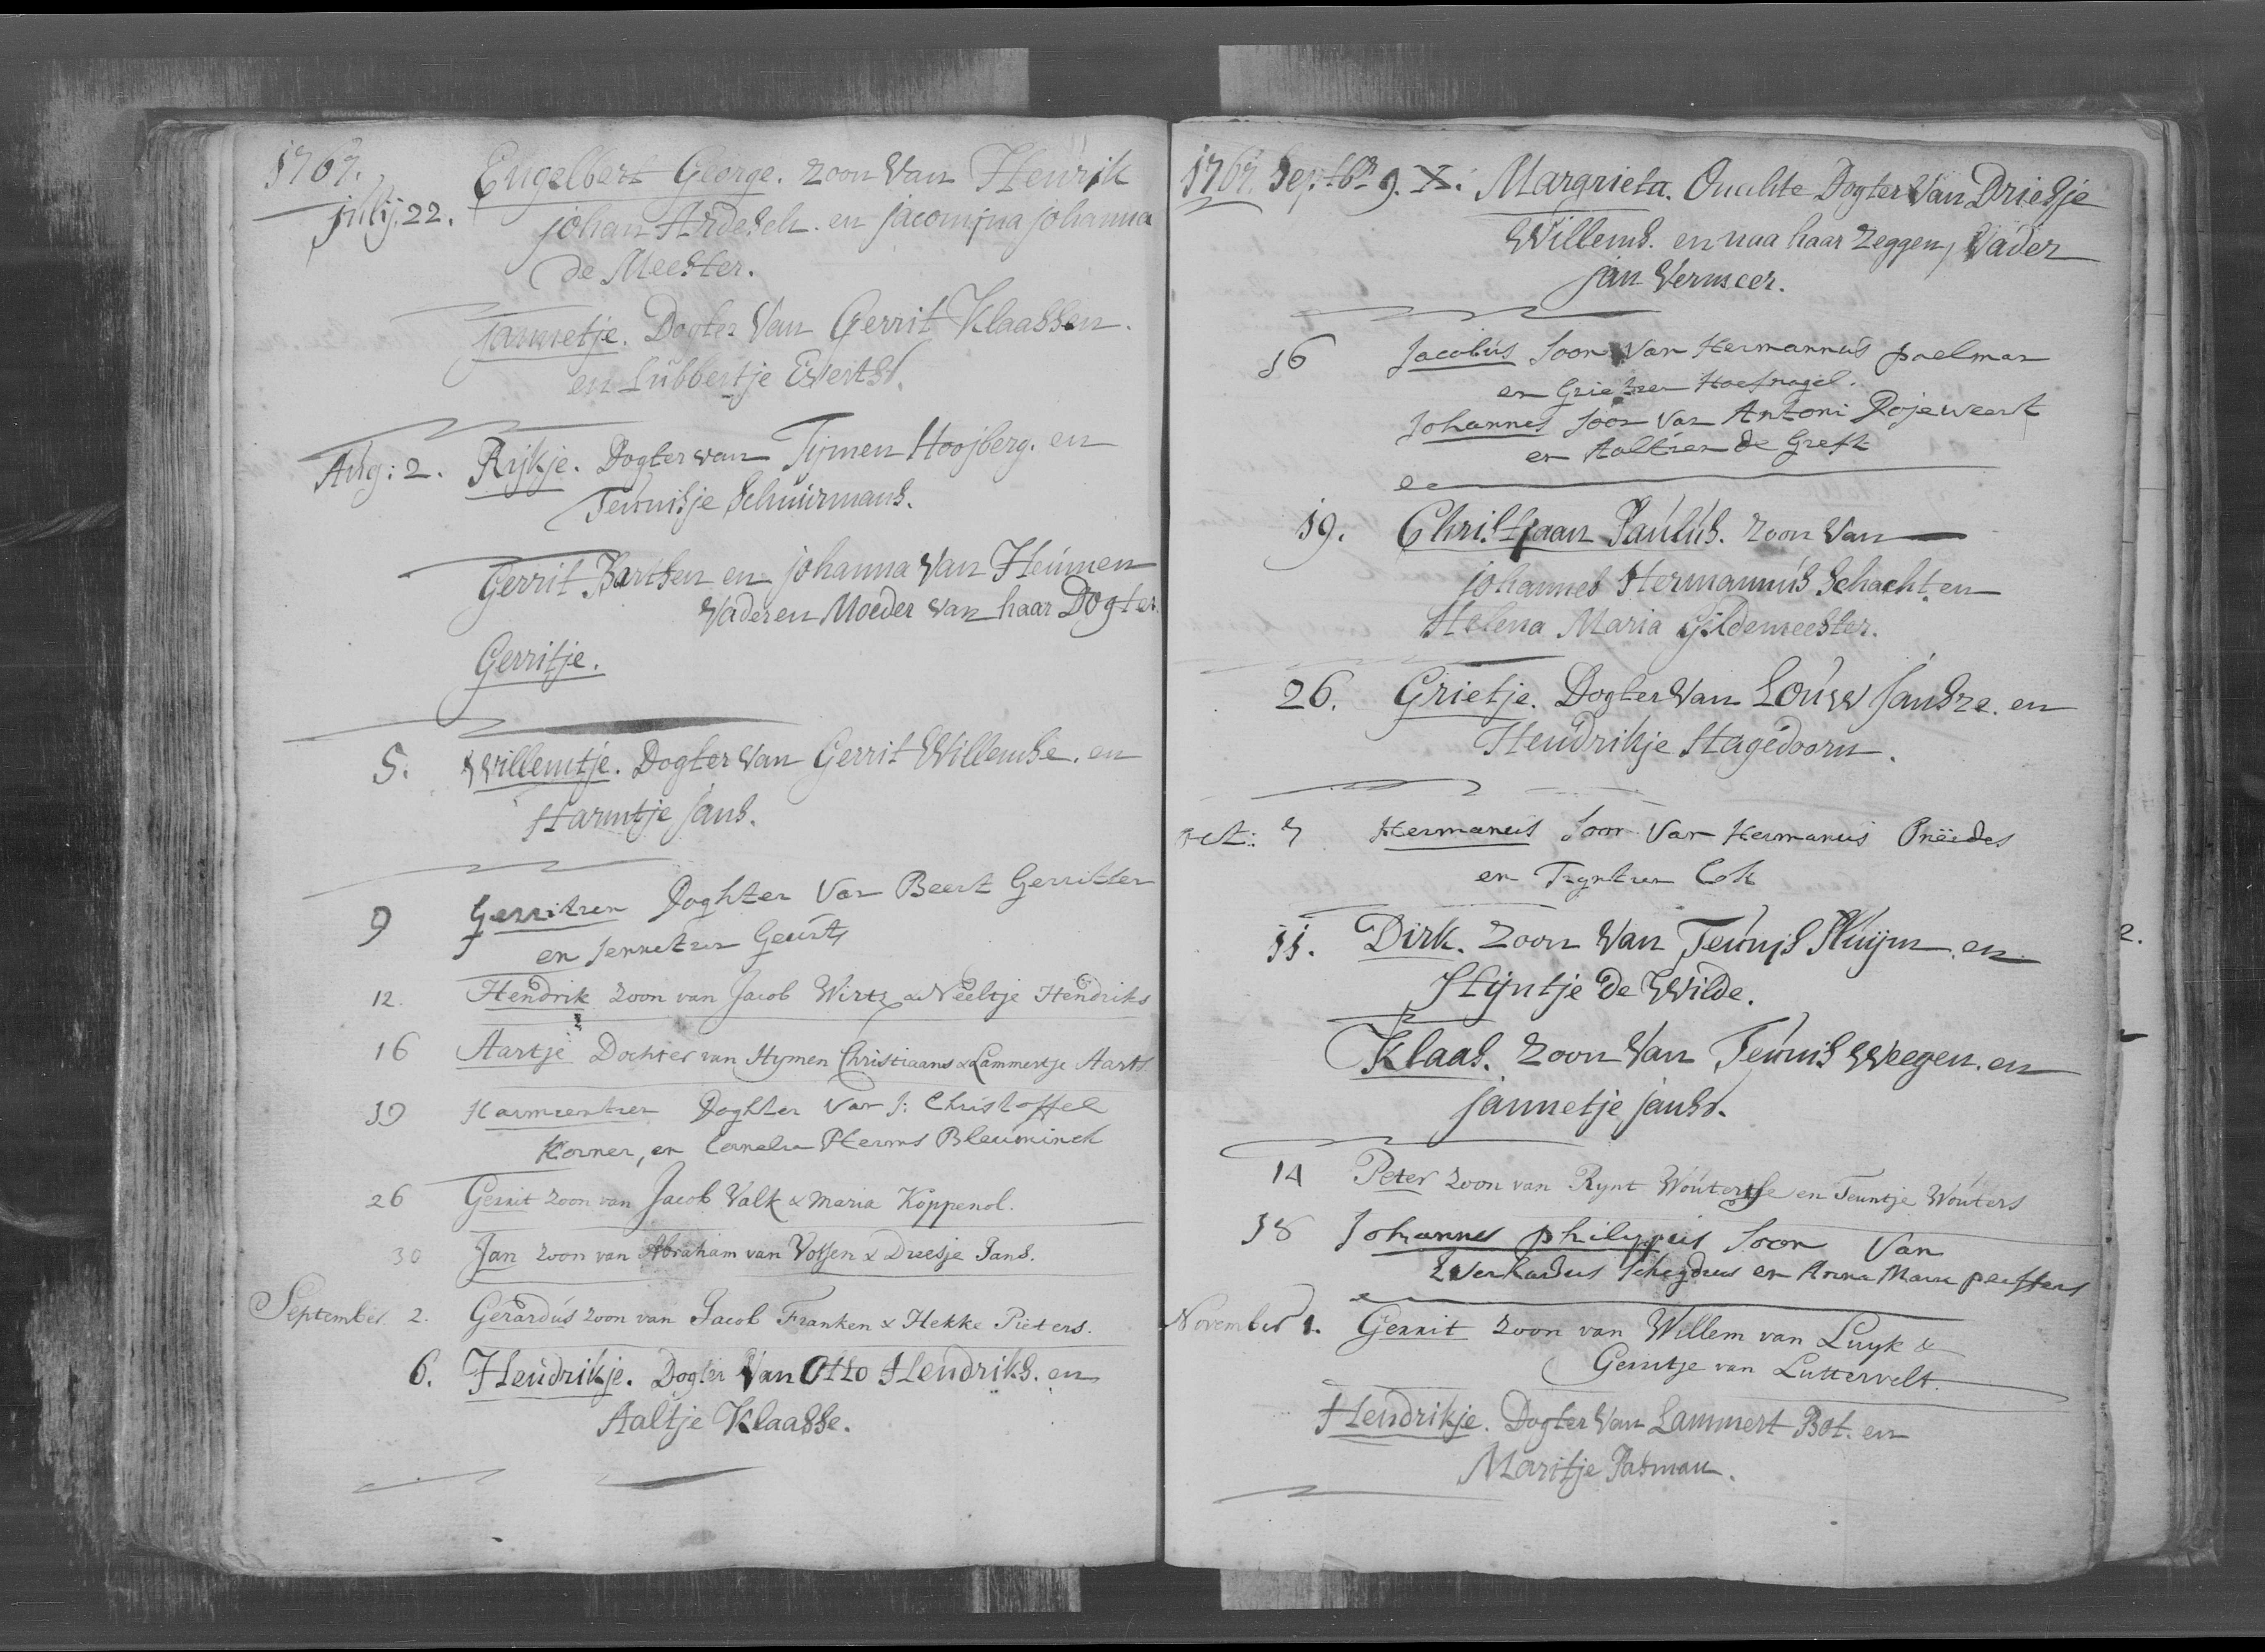 1767.
julij. 22. Engelbert George. zoon Van Henrik
johan Ardesch. en jacomjna johanna
de Meester.
jannetje. Dogter Van Gerrit Klaassen.
en Lubbertje Everts.
Aug: 2. Rijkje. Dogter van Tijmen Hoojberg. en
Teunisje Schuurmans.
Gerrit Bartsen en johanna Van Heumen
Vader en Moeder van haar Dogter
Gerritje.
5. Willemtje. Dogter Van Gerrit Willemse. en
Harmtje jans.
9 Gerritzen Doghter Van Beert Gerritsen
en Jennetzen Geurts
12. Hendrik zoon van Jacob Wirtz & Neeltje Hendriks
16 Aartje Dochter van Hymen Christiaans & Lammertje Aarts
19 Doghter Van J: Christoffel
Korner, en Cornelia Herms Bleuminck
26 Gerrit zoon van Jacob Valk & Maria Koppenol.
30 Jan zoon van Abraham van Vossen & Dreesje Jans.
September 2. Gerardus zoon van Jacob Franken & Hekke Pieters.
6. Hendrikje. Dogter Van Otto Hendriks. en
Aaltje Klaasse.
1767. Septbr 9. X. Margrieta. Onechte Dogter Van Driesje
Willems. en naa haar zeggen, Vader
jan Vermeer.
16 Jacobus Soon Van Hermannus poelman
en Grietzen Hoefnagel.
Johannes Soon Van Antoni Dojeweert
en Aaltien de Greft
19. Christjaan Paulus. zoon Van
johannes Hermannus Schacht. en
Helena Maria Gildemeester.
26. Grietje. Dogter Van Louw janszе. en
Hendrikje Hagedoorn.
oct: 7 Hermanus Soon Van Hermanus
en Tryntzen Cok
11. Dirk. zoon Van Teunis Pluijm. en
Stijntje De Wilde.
Klaas. zoon Van Teunis Weegen. en
jannetje jans.
14 Peter zoon van Rynt Wouterse en Teuntje Wouters
18 Johannes philippus Soon Van
Everhardus en Anna Maria peffers
November 1. Gerrit zoon van Willem van Luyk &
Gerritje van Luttervelt.
Hendrikje. Dogter Van Lammert Bot. en
Maritje Patman.
2.